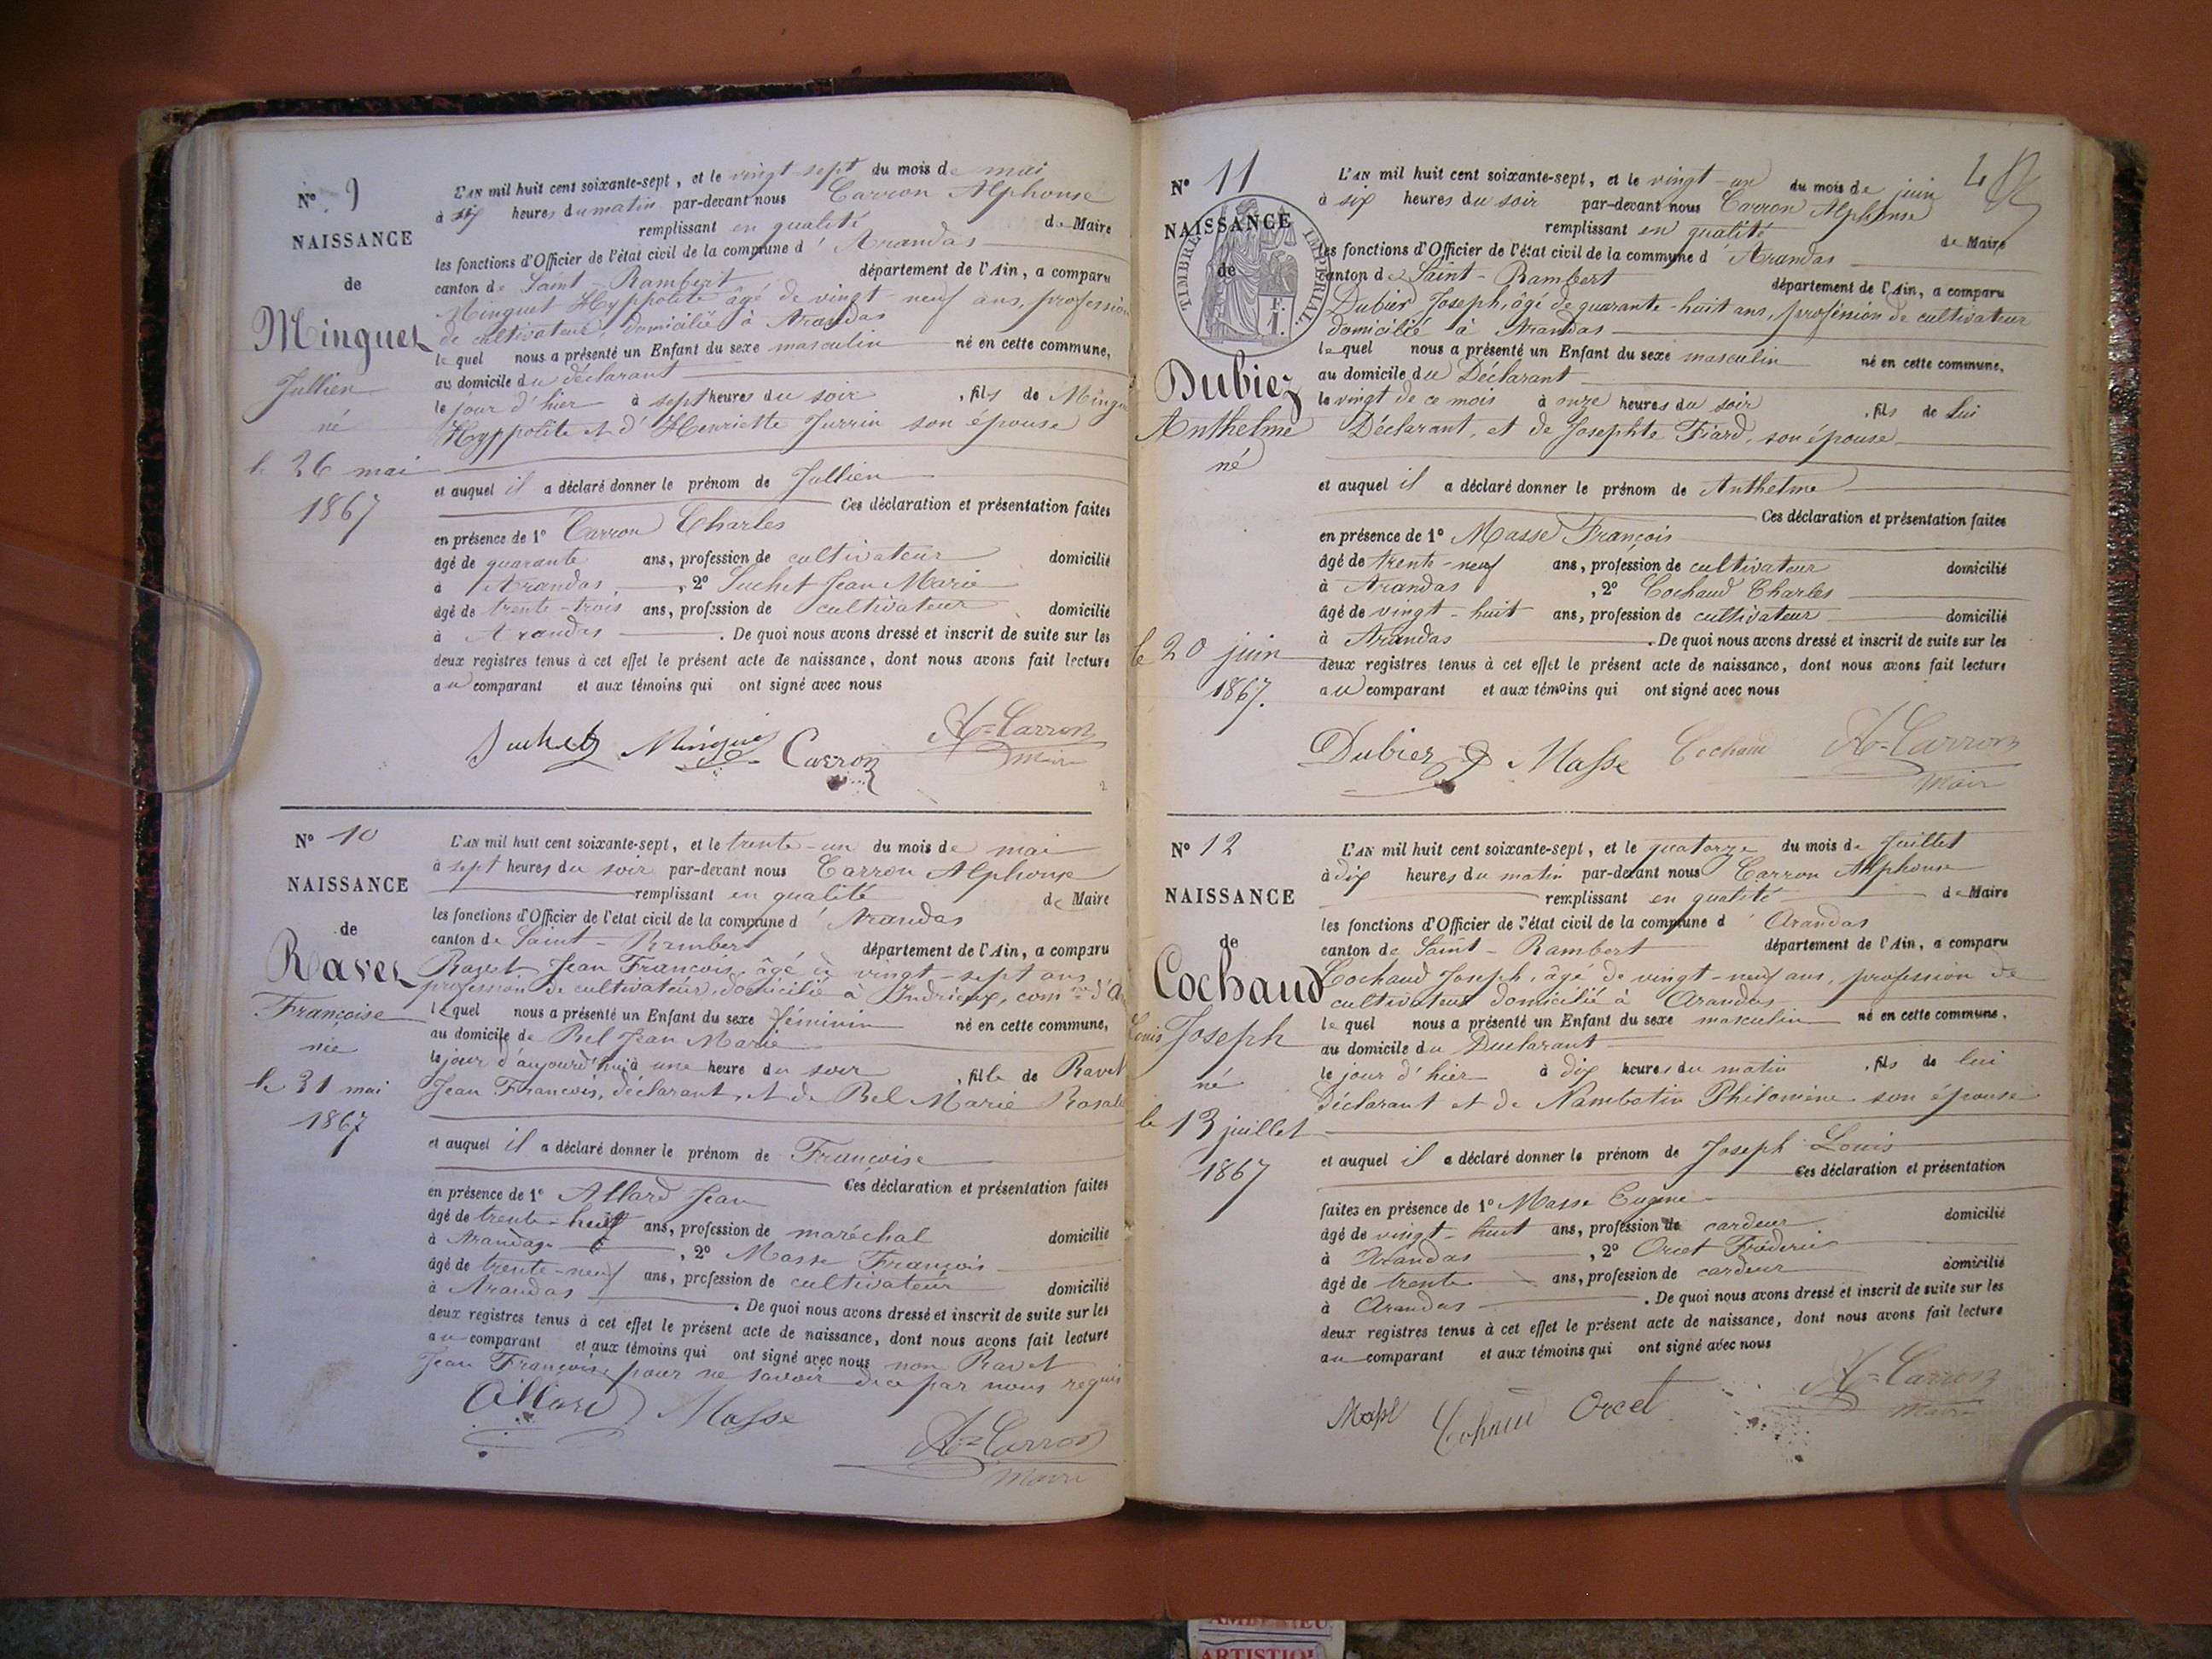 N° 9
NAISSANCE
de
Minguet
Jullien
né
le 26 mai
1867
L'AN mil huit cent soixante-sept, et le vingt sept du mois de mai
à six heures du matin par-devant nous Carron Alphonse
remplissant en qualité de Maire
les fonctions d'Officier de l'état civil de la commune d'Arandas
canton de Saint-Rambert département de l'Ain, a comparu
Minguet Hyppolite âgé de vingt-neuf ans, profession
de cultivateur domicilié à Arandas
lequel nous a présenté un Enfant du sexe masculin né en cette commune,
au domicile du déclarant
le jour d'hier à sept heures du soir, fils de Mingu
Hyppolite et d'Henriette Jurrin son épouse
et auquel il a déclaré donner le prénom de Jullien
Ces déclaration et présentation faites
en présence de 1° Carron Charles
âgé de quarante ans, profession de cultivateur domicilié
à Arandas, 2° Suchet Jean Marie
âgé de trente-trois ans, profession de cultivateur domicilié
à Arandas. De quoi nous avons dressé et inscrit de suite sur les
deux registres tenus à cet effet le présent acte de naissance, dont nous avons fait lecture
au comparant et aux témoins qui ont signé avec nous
Suchet Minguet Carron A=Carron
Maire
N° 10
NAISSANCE
de
Ravet
Françoise
née
le 31 mai
1867
L'AN mil huit cent soixante-sept, et le trente-un du mois de mai
à sept heures du soir par-devant nous Carron Alphonse
remplissant en qualité de Maire
les fonctions d'Officier de l'état civil de la commune d'Arandas
canton de Saint-Rambert département de l'Ain, a comparu
Ravet Jean François, âgé de vingt-sept ans
profession de cultivateur, domicilié à Indrieux, comne d'Ar
lequel nous a présenté un Enfant du sexe féminin né en cette commune,
au domicile de Bel Jean Marie
le jour d'aujourd'hui à une heure du soir, fille de Ravet
Jean François, déclarant, et de Bel Marie Rosalie
et auquel il a déclaré donner le prénom de Françoise
Ces déclaration et présentation faites
en présence de 1° Allard Jean
âgé de trente-huit ans, profession de maréchal domicilié
à Arandas, 2° Masse François
âgé de trente-neuf ans, profession de cultivateur domicilié
à Arandas. De quoi nous avons dressé et inscrit de suite sur les
deux registres tenus à cet effet le présent acte de naissance, dont nous avons fait lecture
au comparant et aux témoins qui ont signé avec nous non Ravet
Jean François, pour ne savoir de ce par nous requis
Allard Masse A=Carron
Maire
N° 11
NAISSANCE
de
TIMBRE IMPERIAL
1 F.
Dubiez
Anthelme
né
le 20 juin
1867.
L'AN mil huit cent soixante-sept, et le vingt-un du mois de juin
à six heures du soir par-devant nous Carron Alphonse
remplissant en qualité de Maire
les fonctions d'Officier de l'état civil de la commune d'Arandas
canton de Saint-Rambert département de l'Ain, a comparu
Dubiez Joseph, âgé de quarante-huit ans, profession de cultivateur
domicilié à Arandas
lequel nous a présenté un Enfant du sexe masculin né en cette commune,
au domicile du Déclarant
le vingt de ce mois à onze heures du soir, fils de lui
Déclarant, et de Josephte Fiard, son épouse
et auquel il a déclaré donner le prénom de Anthelme
Ces déclaration et présentation faites
en présence de 1° Masse François
âgé de trente-neuf ans, profession de cultivateur domicilié
à Arandas, 2° Cochaud Charles
âgé de vingt-huit ans, profession de cultivateur domicilié
à Arandas. De quoi nous avons dressé et inscrit de suite sur les
deux registres tenus à cet effet le présent acte de naissance, dont nous avons fait lecture
au comparant et aux témoins qui ont signé avec nous
Dubiez Masse Cochaud A=Carron
Maire
N° 12
NAISSANCE
de
Cochaud
Louis Joseph
né
le 13 juillet
1867
L'AN mil huit cent soixante-sept, et le quatorze du mois de Juillet
à dix heures du matin par-devant nous Carron Alphonse
remplissant en qualité de Maire
les fonctions d'Officier de l'état civil de la commune d'Arandas
canton de Saint-Rambert département de l'Ain, a comparu
Cochaud Joseph, âgé de vingt-neuf ans, profession de
cultivateur domicilié à Arandas
lequel nous a présenté un Enfant du sexe masculin né en cette commune,
au domicile du Duclarant
le jour d'hier à dix heures du matin, fils de lui
Déclarant et de Nambotin Philomène son épouse
et auquel il a déclaré donner le prénom de Joseph Louis
Ces déclaration et présentation
faites en présence de 1° Masse Eugène
âgé de vingt-huit ans, profession de cardeur domicilié
à Arandas, 2° Orcet Fréderic
âgé de trente ans, profession de cardeur domicilié
à Arandas. De quoi nous avons dressé et inscrit de suite sur les
deux registres tenus à cet effet le présent acte de naissance, dont nous avons fait lecture
au comparant et aux témoins qui ont signé avec nous
Masse Cohaud Orcet A=Carron
Maire